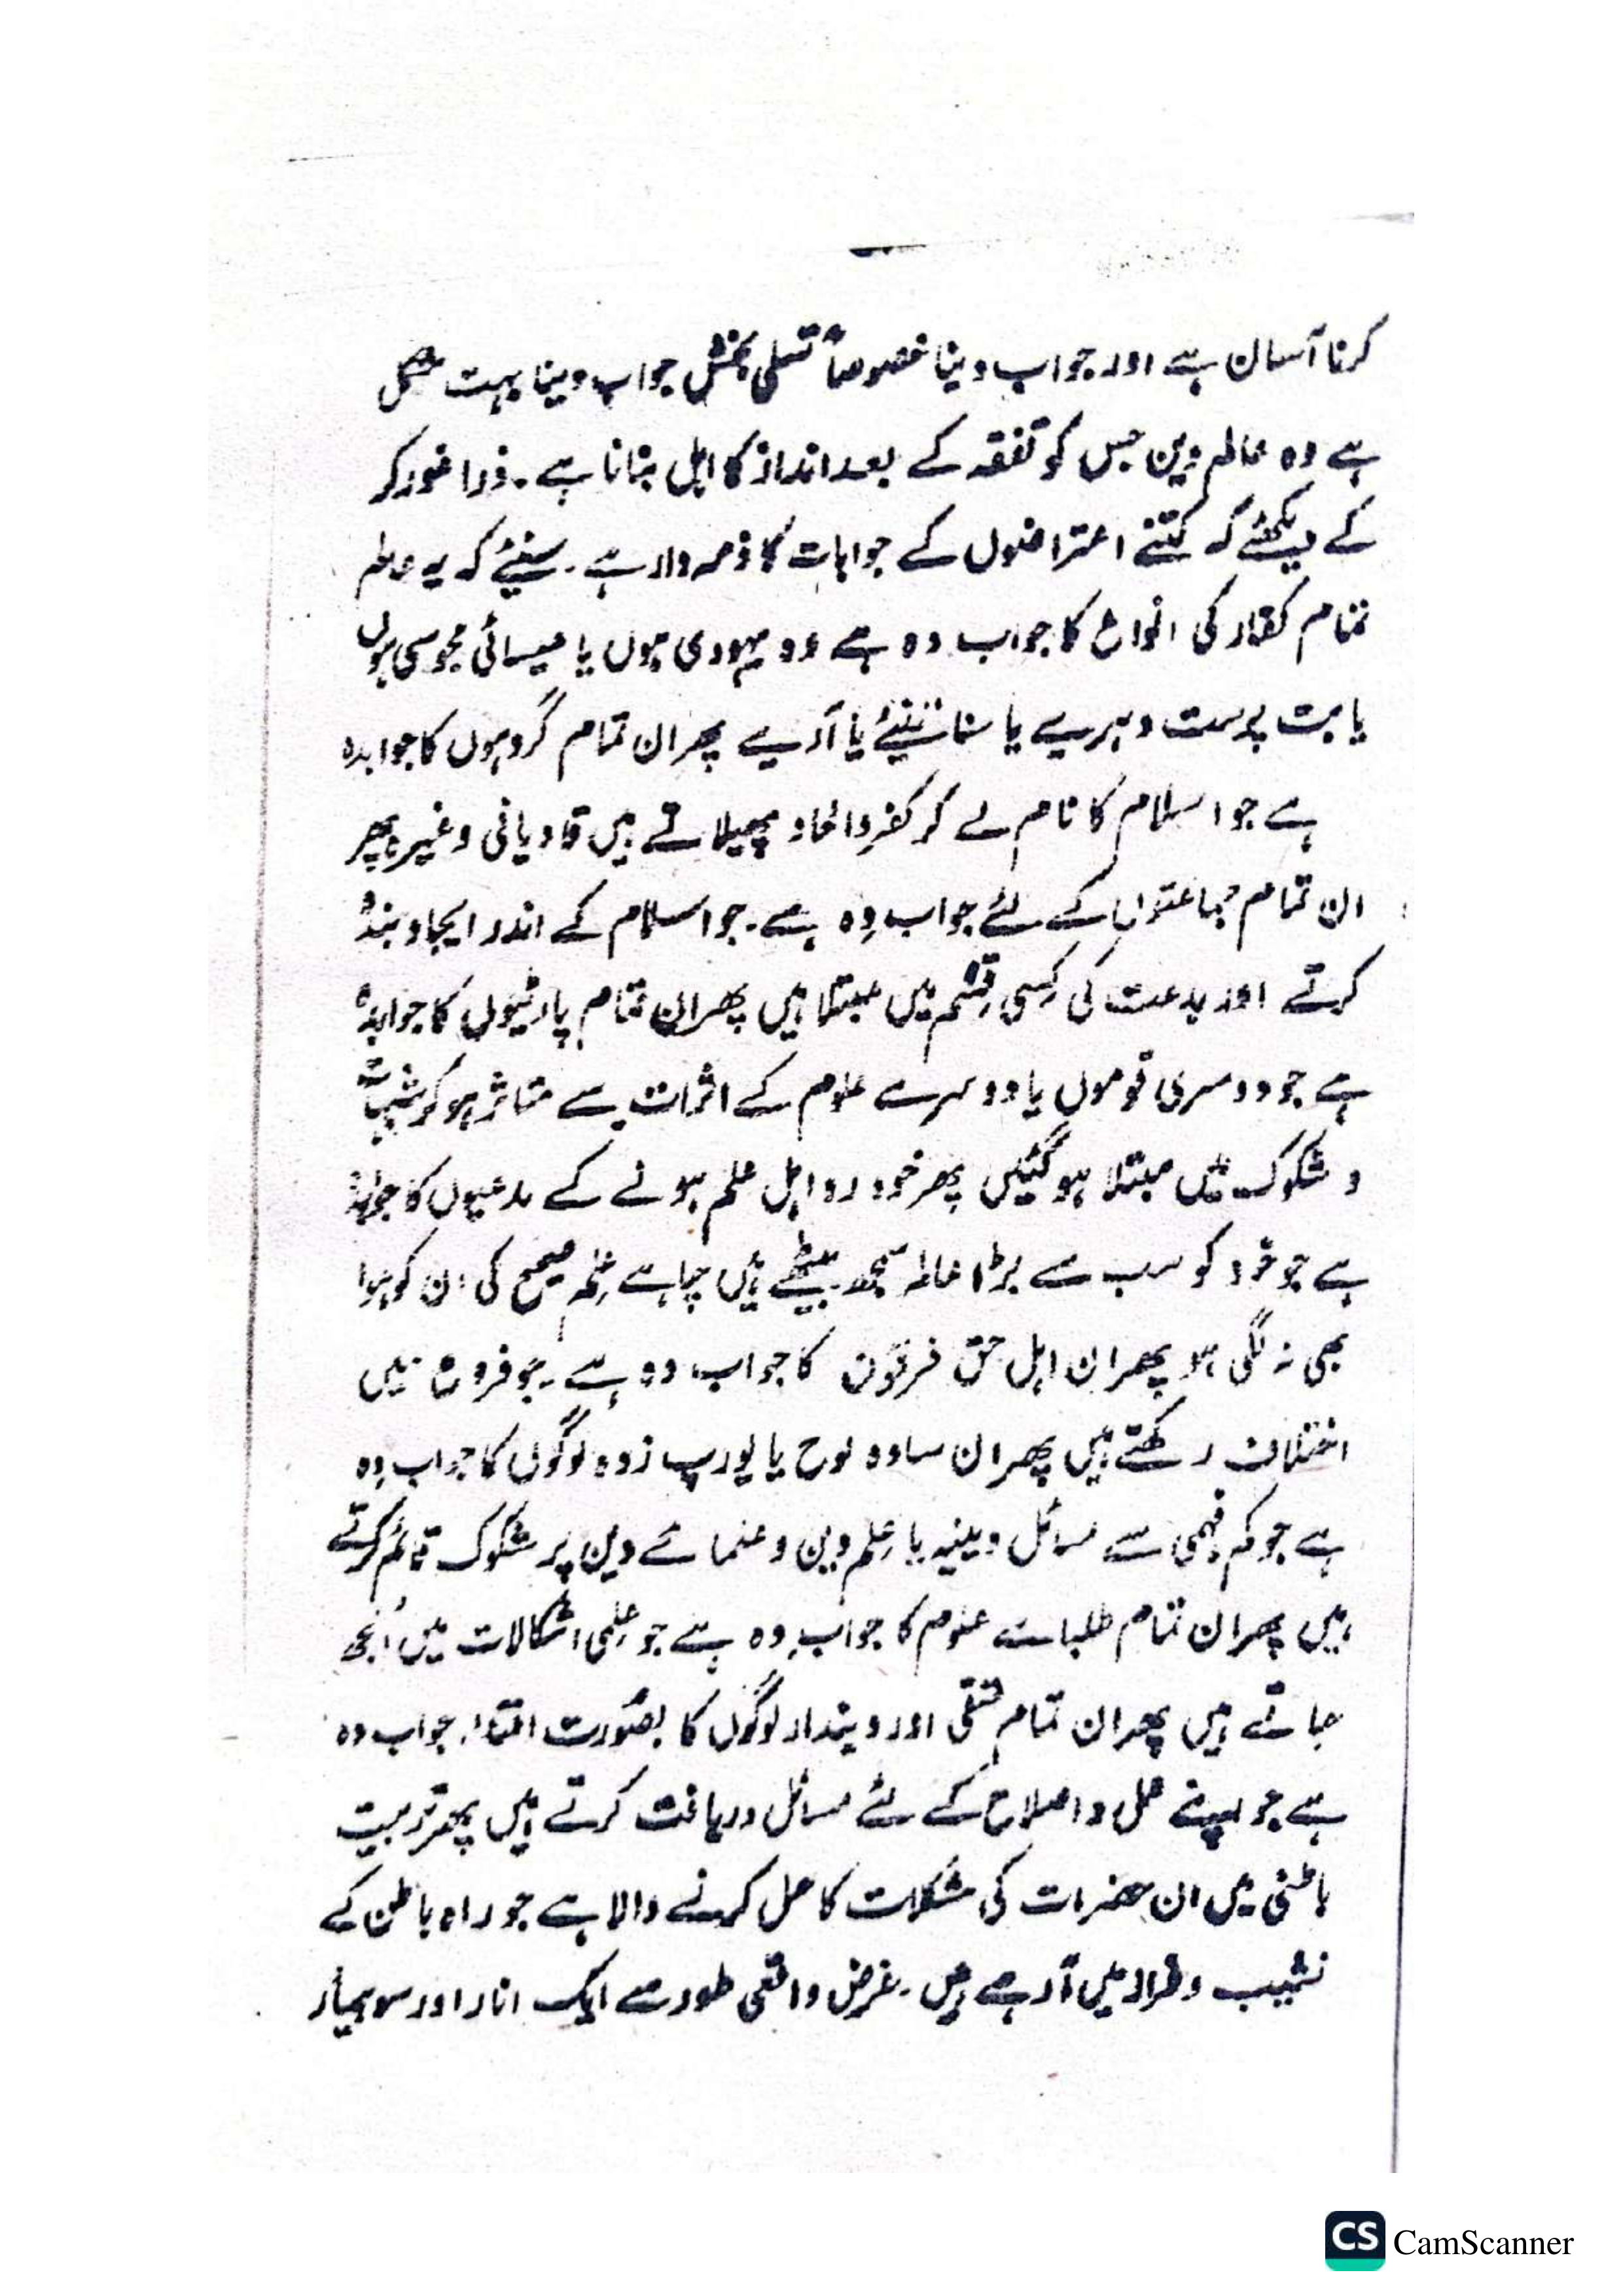 کرنا آسان ہے اور جواب دینا خصوصاً تسلی بخش جواب دینا بہت مشکل
ہے وہ عالم دین جس کو تفقہ کے بعد انداز کا اہل بنانا ہے۔ ذرا غور کر
کے دیکھئے کہ کتنے اعتراضوں کے جوابات کا ذمہ دار ہے۔ سنیئے کہ یہ عالم
تمام کفار کی انواع کا جواب دہ ہے وہ یہودی ہوں یا عیسائی مجوسی ہوں
یا بت پرست دہریے یا سناتنیئے یا آریے پھر ان تمام گروہوں کا جوابدہ
ہے جو اسلام کا نام لے کر کفر و الحاد پھیلاتے ہیں قادیانی وغیرہ پھر
ان تمام جماعتوں کے لئے جواب دِہ ہے۔ جو اسلام کے اندر ایجاد بندہ
کرتے اور بدعت کی کِسی قِسم میں مبتلا ہیں پھر ان تمام پارٹیوں کا جوابدہ
ہے جو دوسری قوموں یا دوسرے علوم کے اثرات سے متاثر ہو کر شبہات
و شکوک میں مبتلا ہو گئیں پھر خود رو اہل علم ہونے کے مدعیوں کا جوابدہ
ہے جو خود کو سب سے بڑا عالم سمجھ بیٹھے ہیں چاہے عِلم صحیح کی ان کو ہوا
بھی نہ لگی ہو پھر ان اہل حق فرقوں کا جواب دہ ہے۔ جو فروع میں
اختلاف رکھتے ہیں پھر ان سادہ لوح یا یورپ زدہ لوگوں کا جواب دِہ
ہے جو کم فہمی سے مسائل دینیہ یا عِلم دین و علمائے دین پر شکوک قائم کرتے
ہیں پھر ان تمام طلبائے علوم کا جواب دِہ ہے جو عِلمی اشکالات میں اُلجھ
جاتے ہیں پھر ان تمام متقی اور دیندار لوگوں کا بصُورت افتاء جواب دہ
ہے جو اپنے عمل و اصلاح کے لئے مسائل دریافت کرتے ہیں پھر تربیت
باطنی میں ان حضرات کی مشکلات کا حل کرنے والا ہے جو راہ باطن کے
نشیب و فراز میں آ رہے ہیں۔ غرض واقعی طور سے ایک انار اور سو بیمار
CS CamScanner